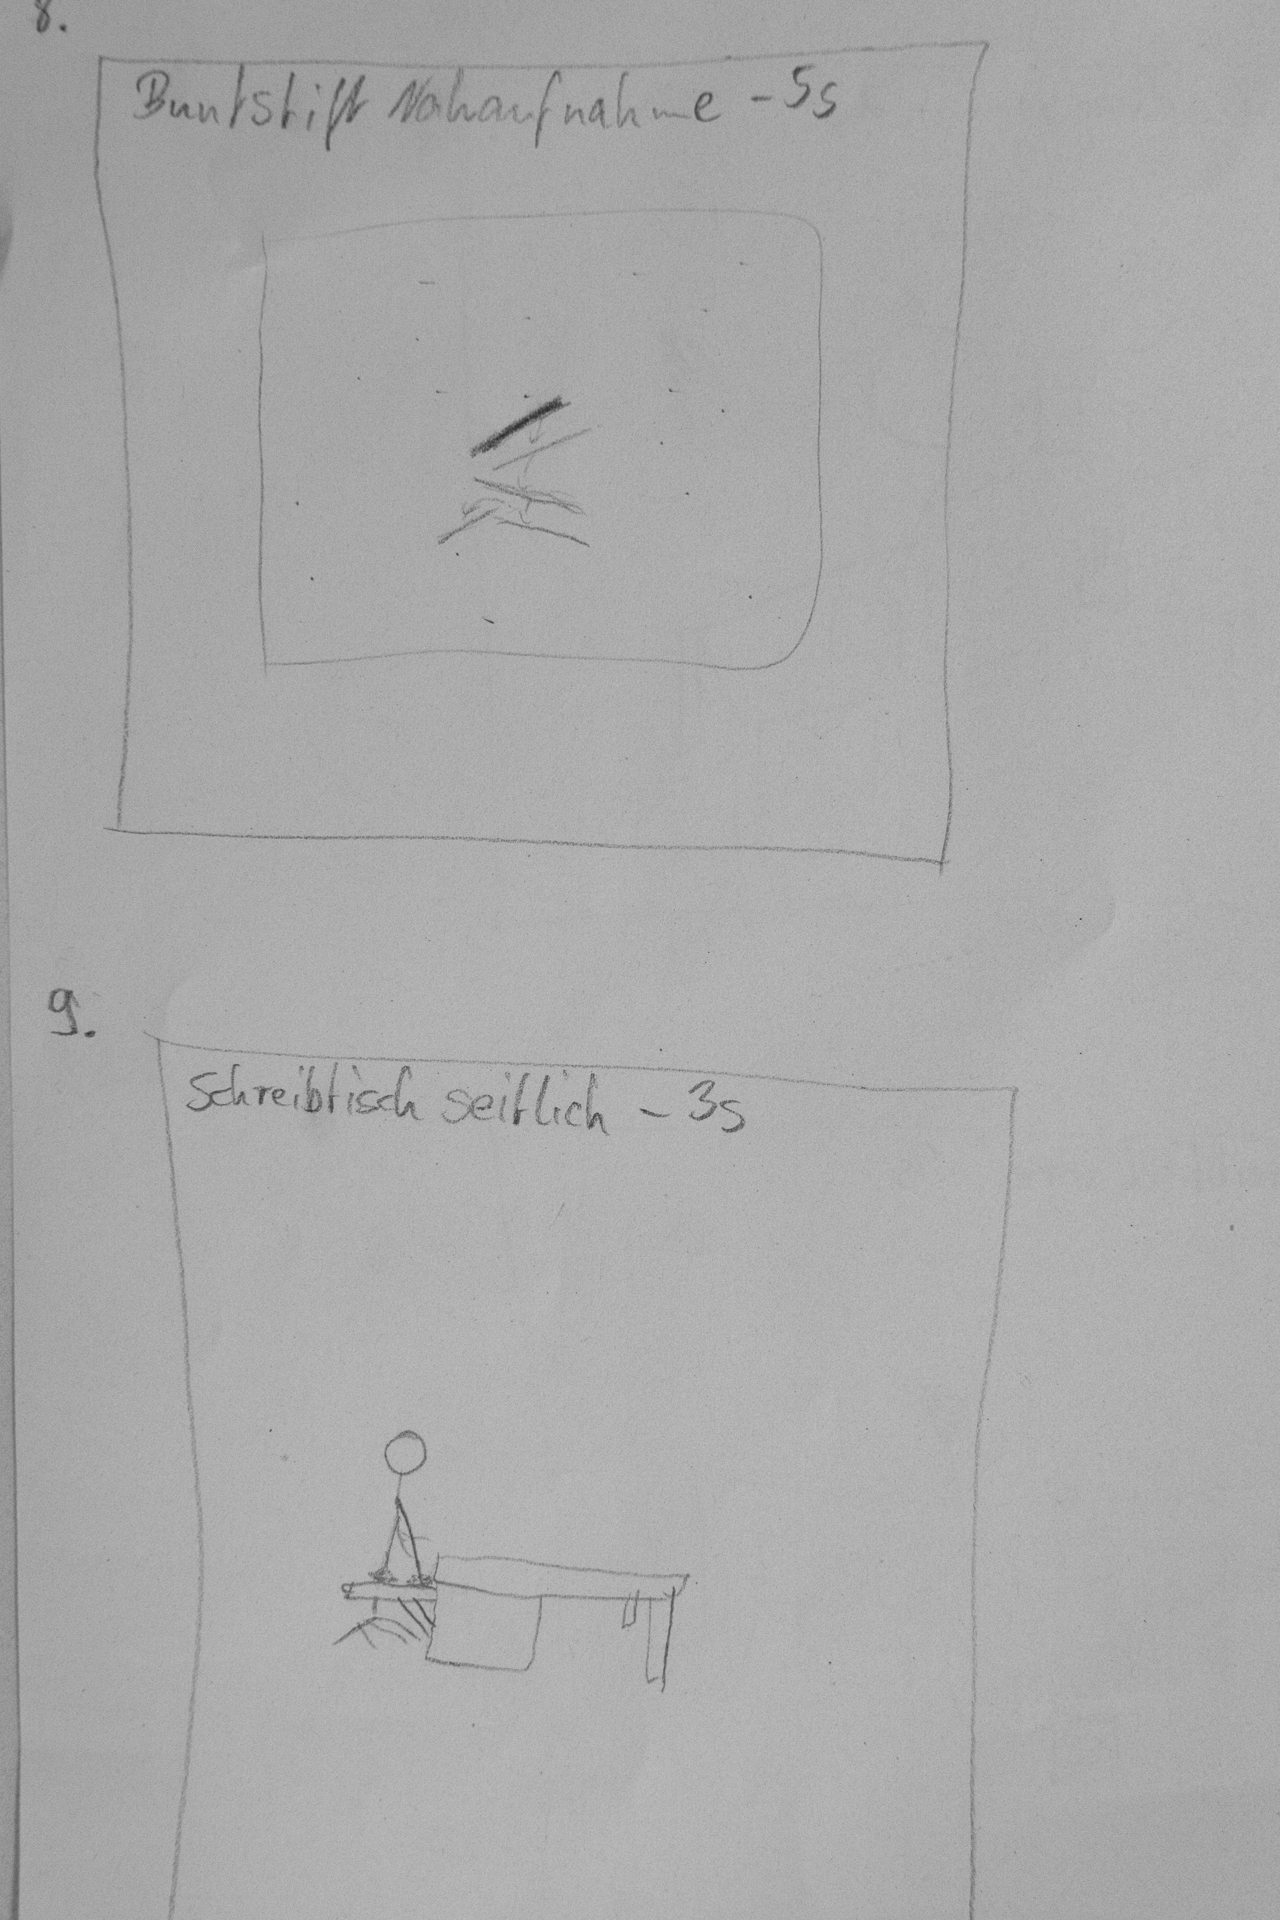 8.
Buntstift Nahaufnahme - 5s
9.
Schreibtisch seitlich - 3s